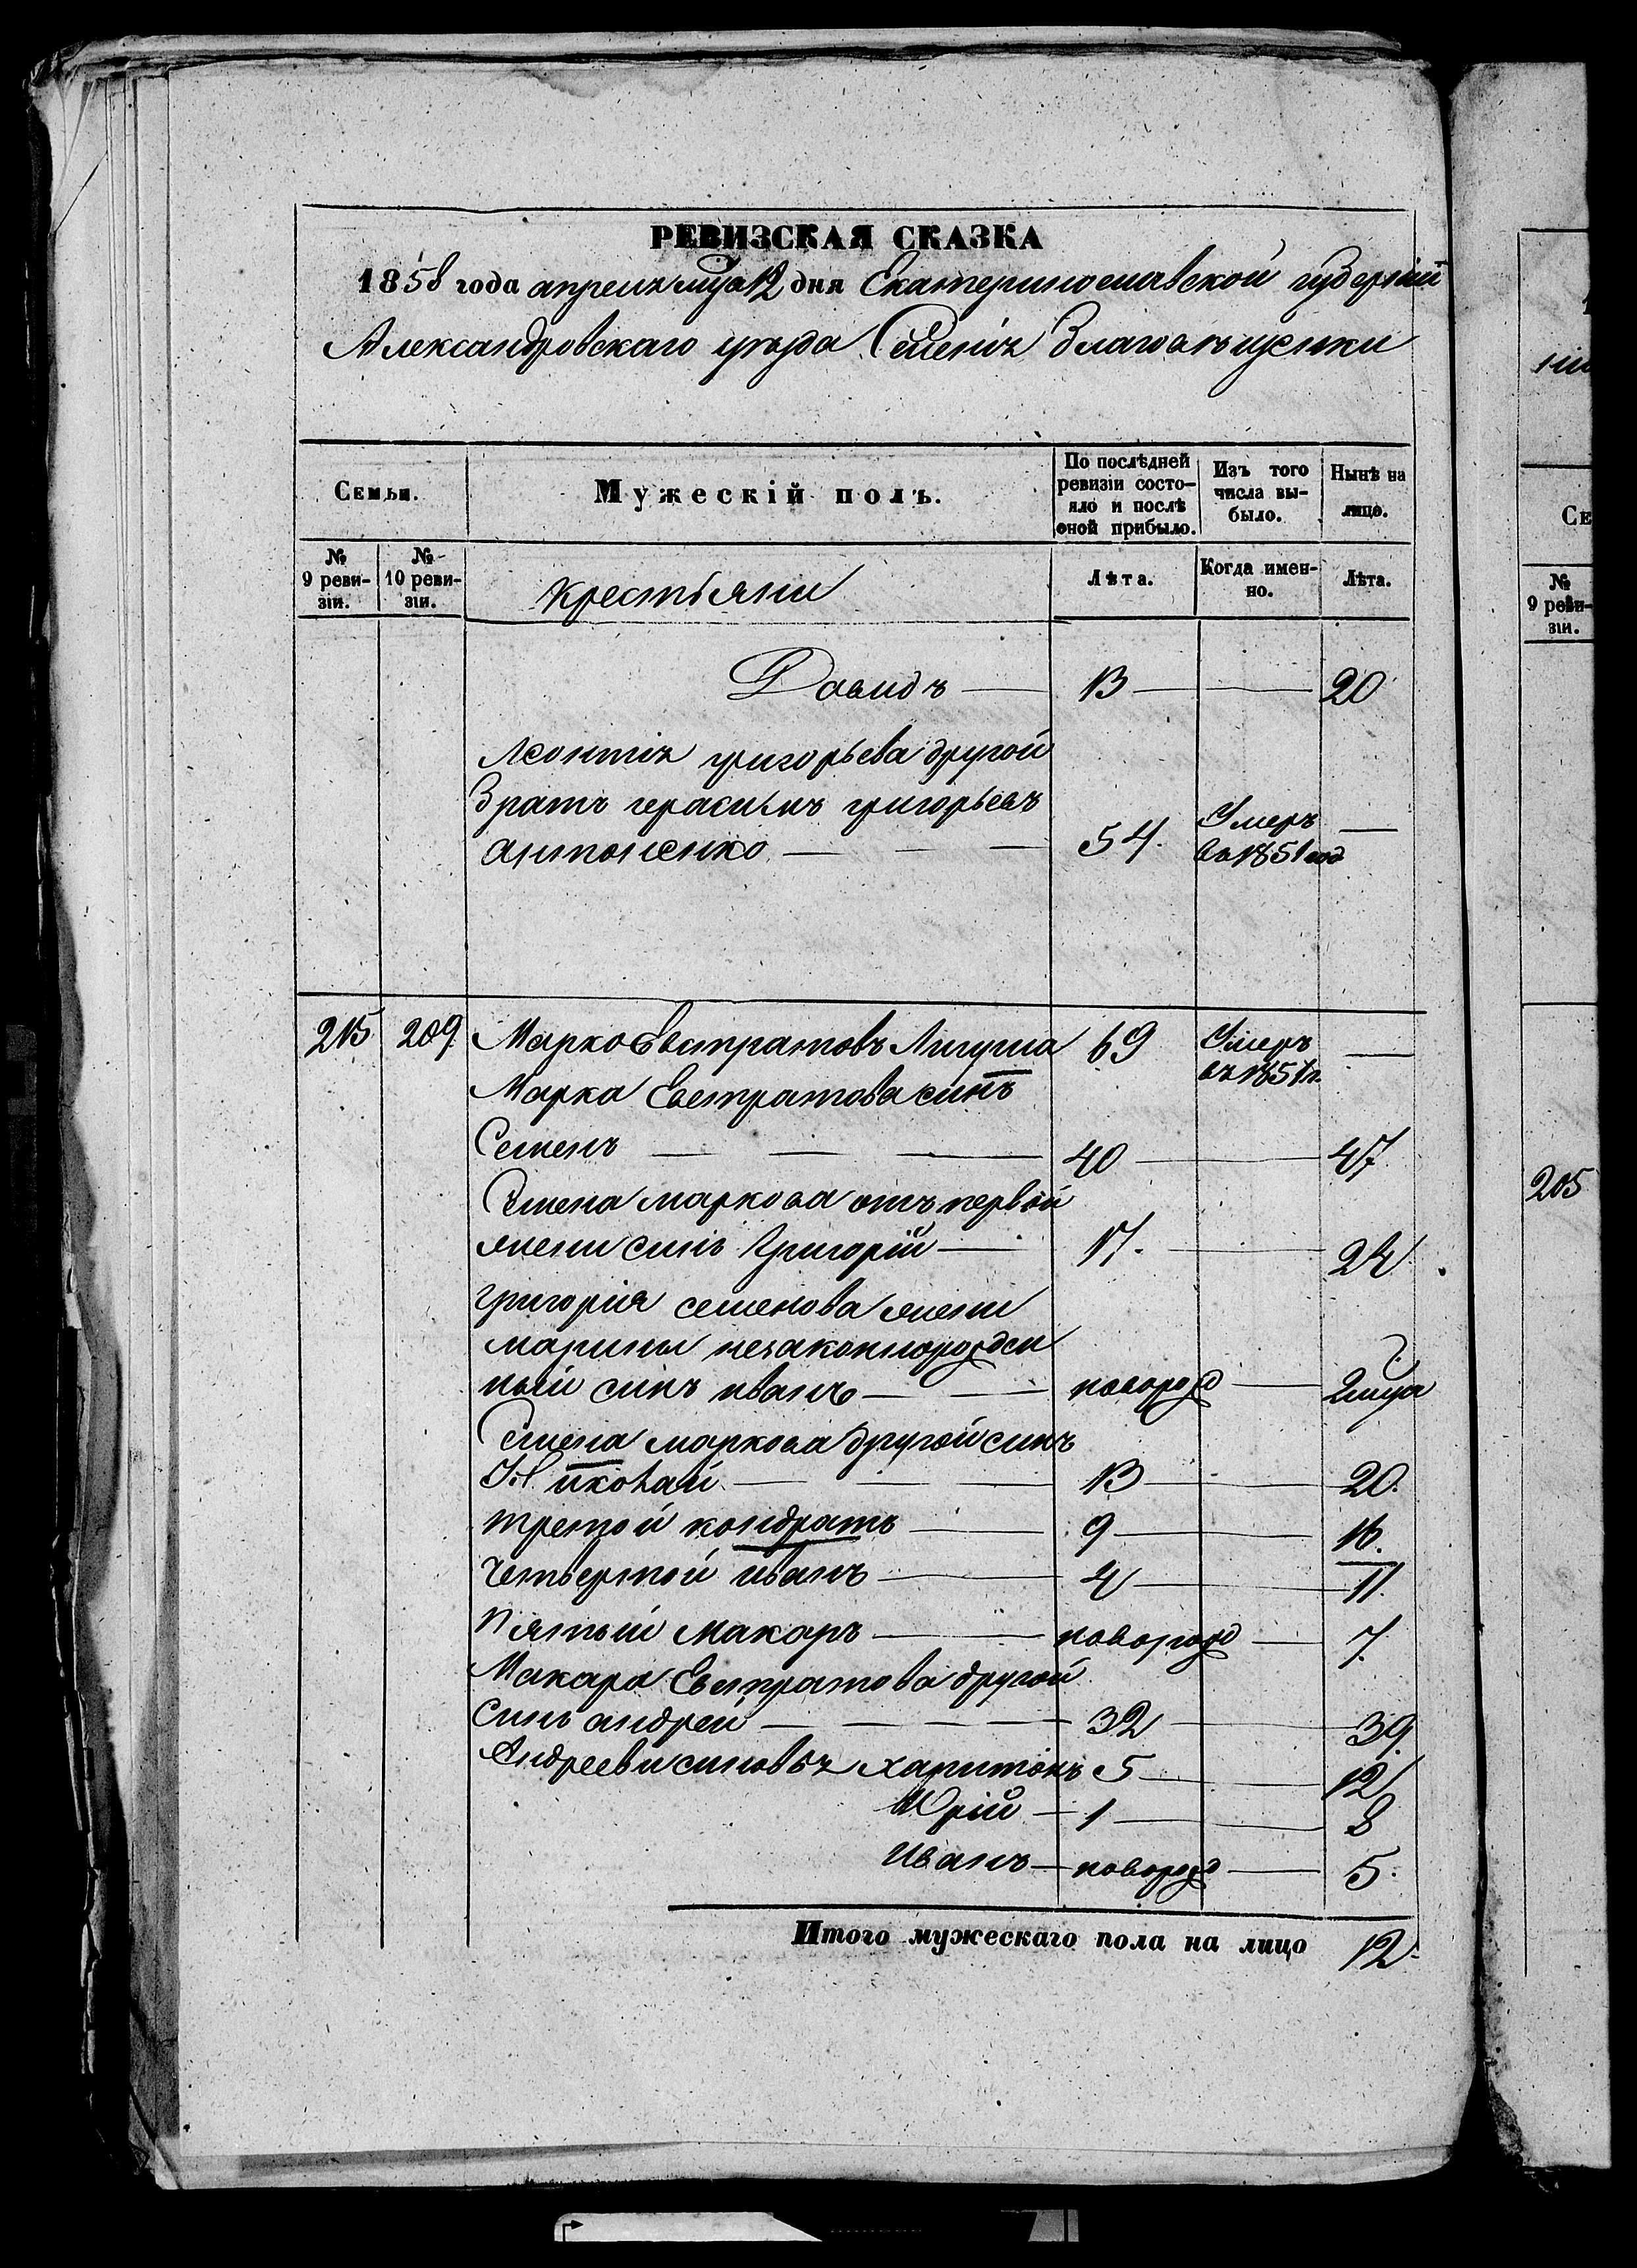 РЕВИЗСКАЯ СКАЗКА
1858 года апреля мца 12 дня Екатеринославской губерніи
Александровскаго уезда Селенія Благовещенки
Семьи.
Мужескій полъ.
По послѣдней ревизіи состо-
яло и послѣ
оной прибыло.
Изъ того
числа вы-
было.
Нынѣ на
лицо.
№
9 реви-
зіи.
№
10 реви-
зіи.
крестьяни
Лѣта.
Когда имен-
но.
Лѣта.
Давидъ — 13 — 20
Леонтія григорьева другой
братъ герасимъ григорьевъ
антоненко — 54. Умеръ въ 1851 год —
215 209 Марко Евстратовъ Лигуша 69 Умеръ въ 1851 г. —
Марка Евстратова синъ
Семенъ — 40 — 47
Семена маркова отъ первой
жени синъ Григорій — 17. — 24
Григорія семенова жени
марины незаконнорожден
ный синъ иванъ — новорож — 2 мца
Семена маркова другой синъ
Николай — 13 — 20.
третой кондратъ — 9 — 16.
Четвертой иванъ — 4 — 11.
Пятый Макаръ — новорож — 7.
Макара Евстратова другой
синъ андрей — 32 — 39
Андрееви синовья харитонъ 5 — 12
Юрій — 1 — 8
Иванъ — новорож — 5.
Итого мужескаго пола на лицо 12
СЕ
№
9 реви-
зіи.
205